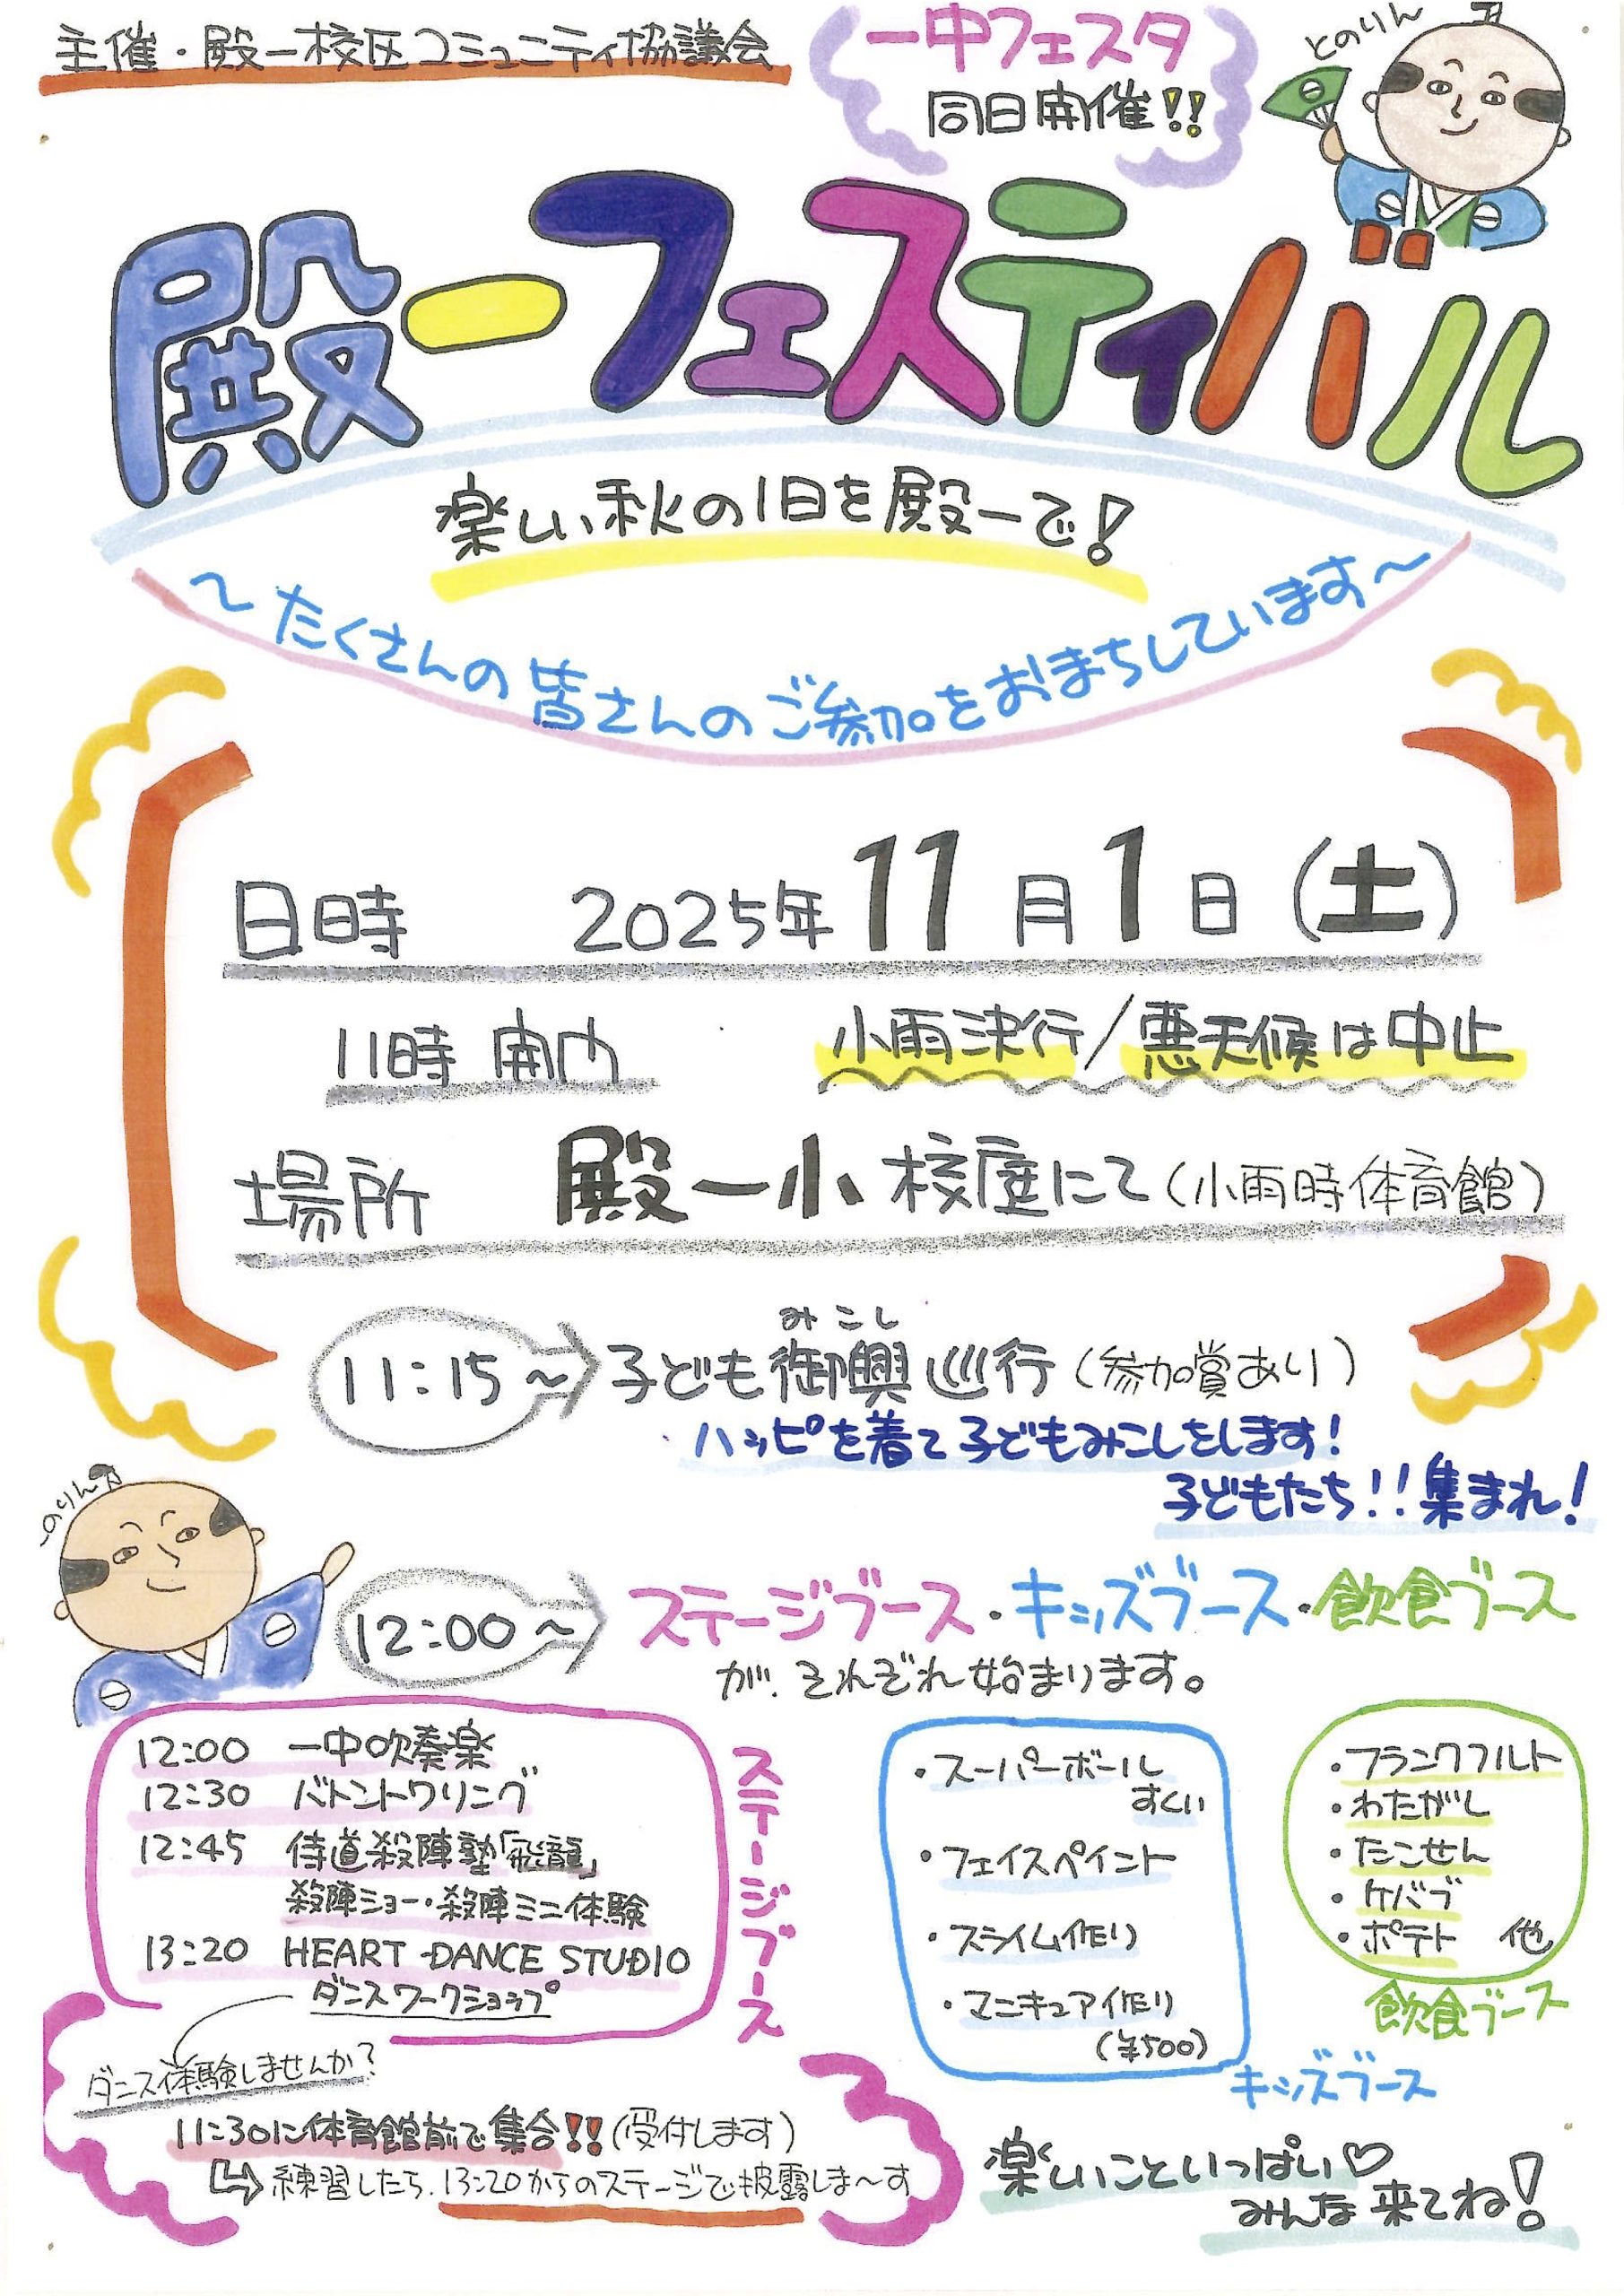 主催・殿一校区コミュニティ協議会
一中フェスタ
同日開催!!
とのりん
殿一フェスティバル
楽しい秋の1日を殿一で!
〜たくさんの皆さんのご参加をおまちしています〜
日時 2025年11月1日(土)
11時開会 小雨決行/悪天候は中止
場所 殿一小校庭にて(小雨時体育館)
みこし
11:15〜 子ども御輿巡行(参加賞あり)
ハッピを着て子どもみこしをします!
子どもたち!!集まれ!
のりん
12:00〜 ステージブース・キッズブース・飲食ブース
が、それぞれ始まります。
12:00 一中吹奏楽
12:30 バトントワリング
12:45 侍道殺陣塾「飛龍」
殺陣ショー・殺陣ミニ体験
13:20 HEART DANCE STUDIO
ダンスワークショップ
ステージブース
・スーパーボール
すくい
・フェイスペイント
・スライム作り
・マニキュア作り
(¥500)
キッズブース
・フランクフルト
・わたがし
・たこせん
・ケバブ
・ポテト 他
飲食ブース
ダンス体験しませんか?
11:30に体育館前で集合!!(受付します)
練習したら、13:20からのステージで披露しま〜す
楽しいこといっぱい♡
みんな来てね!